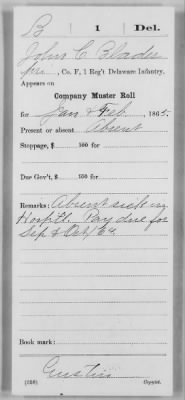 B | 1 | Del.
John C Blades
Pvt., Co. F, 1 Reg't Delaware Infantry.
Appears on
Company Muster Roll
for Jan & Feb, 1865.
Present or absent Absent
Stoppage, $ 100 for
Due Gov't, $ 100 for
Remarks: Absent sick in
Hospitl. Pay due for
Sep & Oct/64
Book mark:
(358) Copyist.